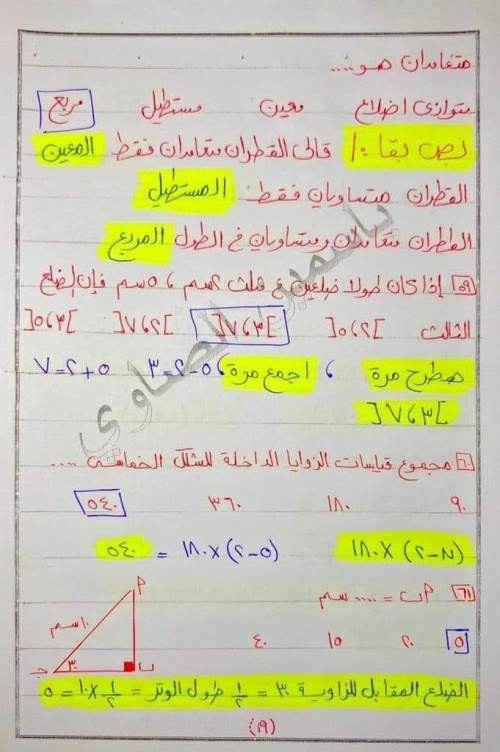 متعامدان هو....
متوازى اضلاع    معين    مستطيل    مربع
بص بقا :/ قالى القطران متعامدان فقط المعين
القطران متساويان فقط المستطيل
القطران متعامدان ومتساويان فى الطول المربع
٥٩ إذا كان طولا ضلعين فى مثلث ٢سم ، ٥سم فإن الضلع
الثالث ]٥،٢[    ]٧،٣[    ]٧،٢[    ]٥،٣[
هطرح مرة ، اجمع مرة ، ٥-٢=٣    ٥+٢=٧
]٧،٣[
٦٠ مجموع قياسات الزوايا الداخلة للشكل الخماسى ....
٩٠    ١٨٠    ٣٦٠    ٥٤٠
(ن-٢)×١٨٠    (٥-٢)×١٨٠ = ٥٤٠
٦١ أب = .... سم
٥    ٢٠    ١٥    ٤٠
أ
١٠سم
٣٠
ب
جـ
الضلع المقابل للزاوية ٣٠ = ١/٢ طول الوتر = ١/٢ × ١٠ = ٥
(١٩)
ياسمين الصاوي